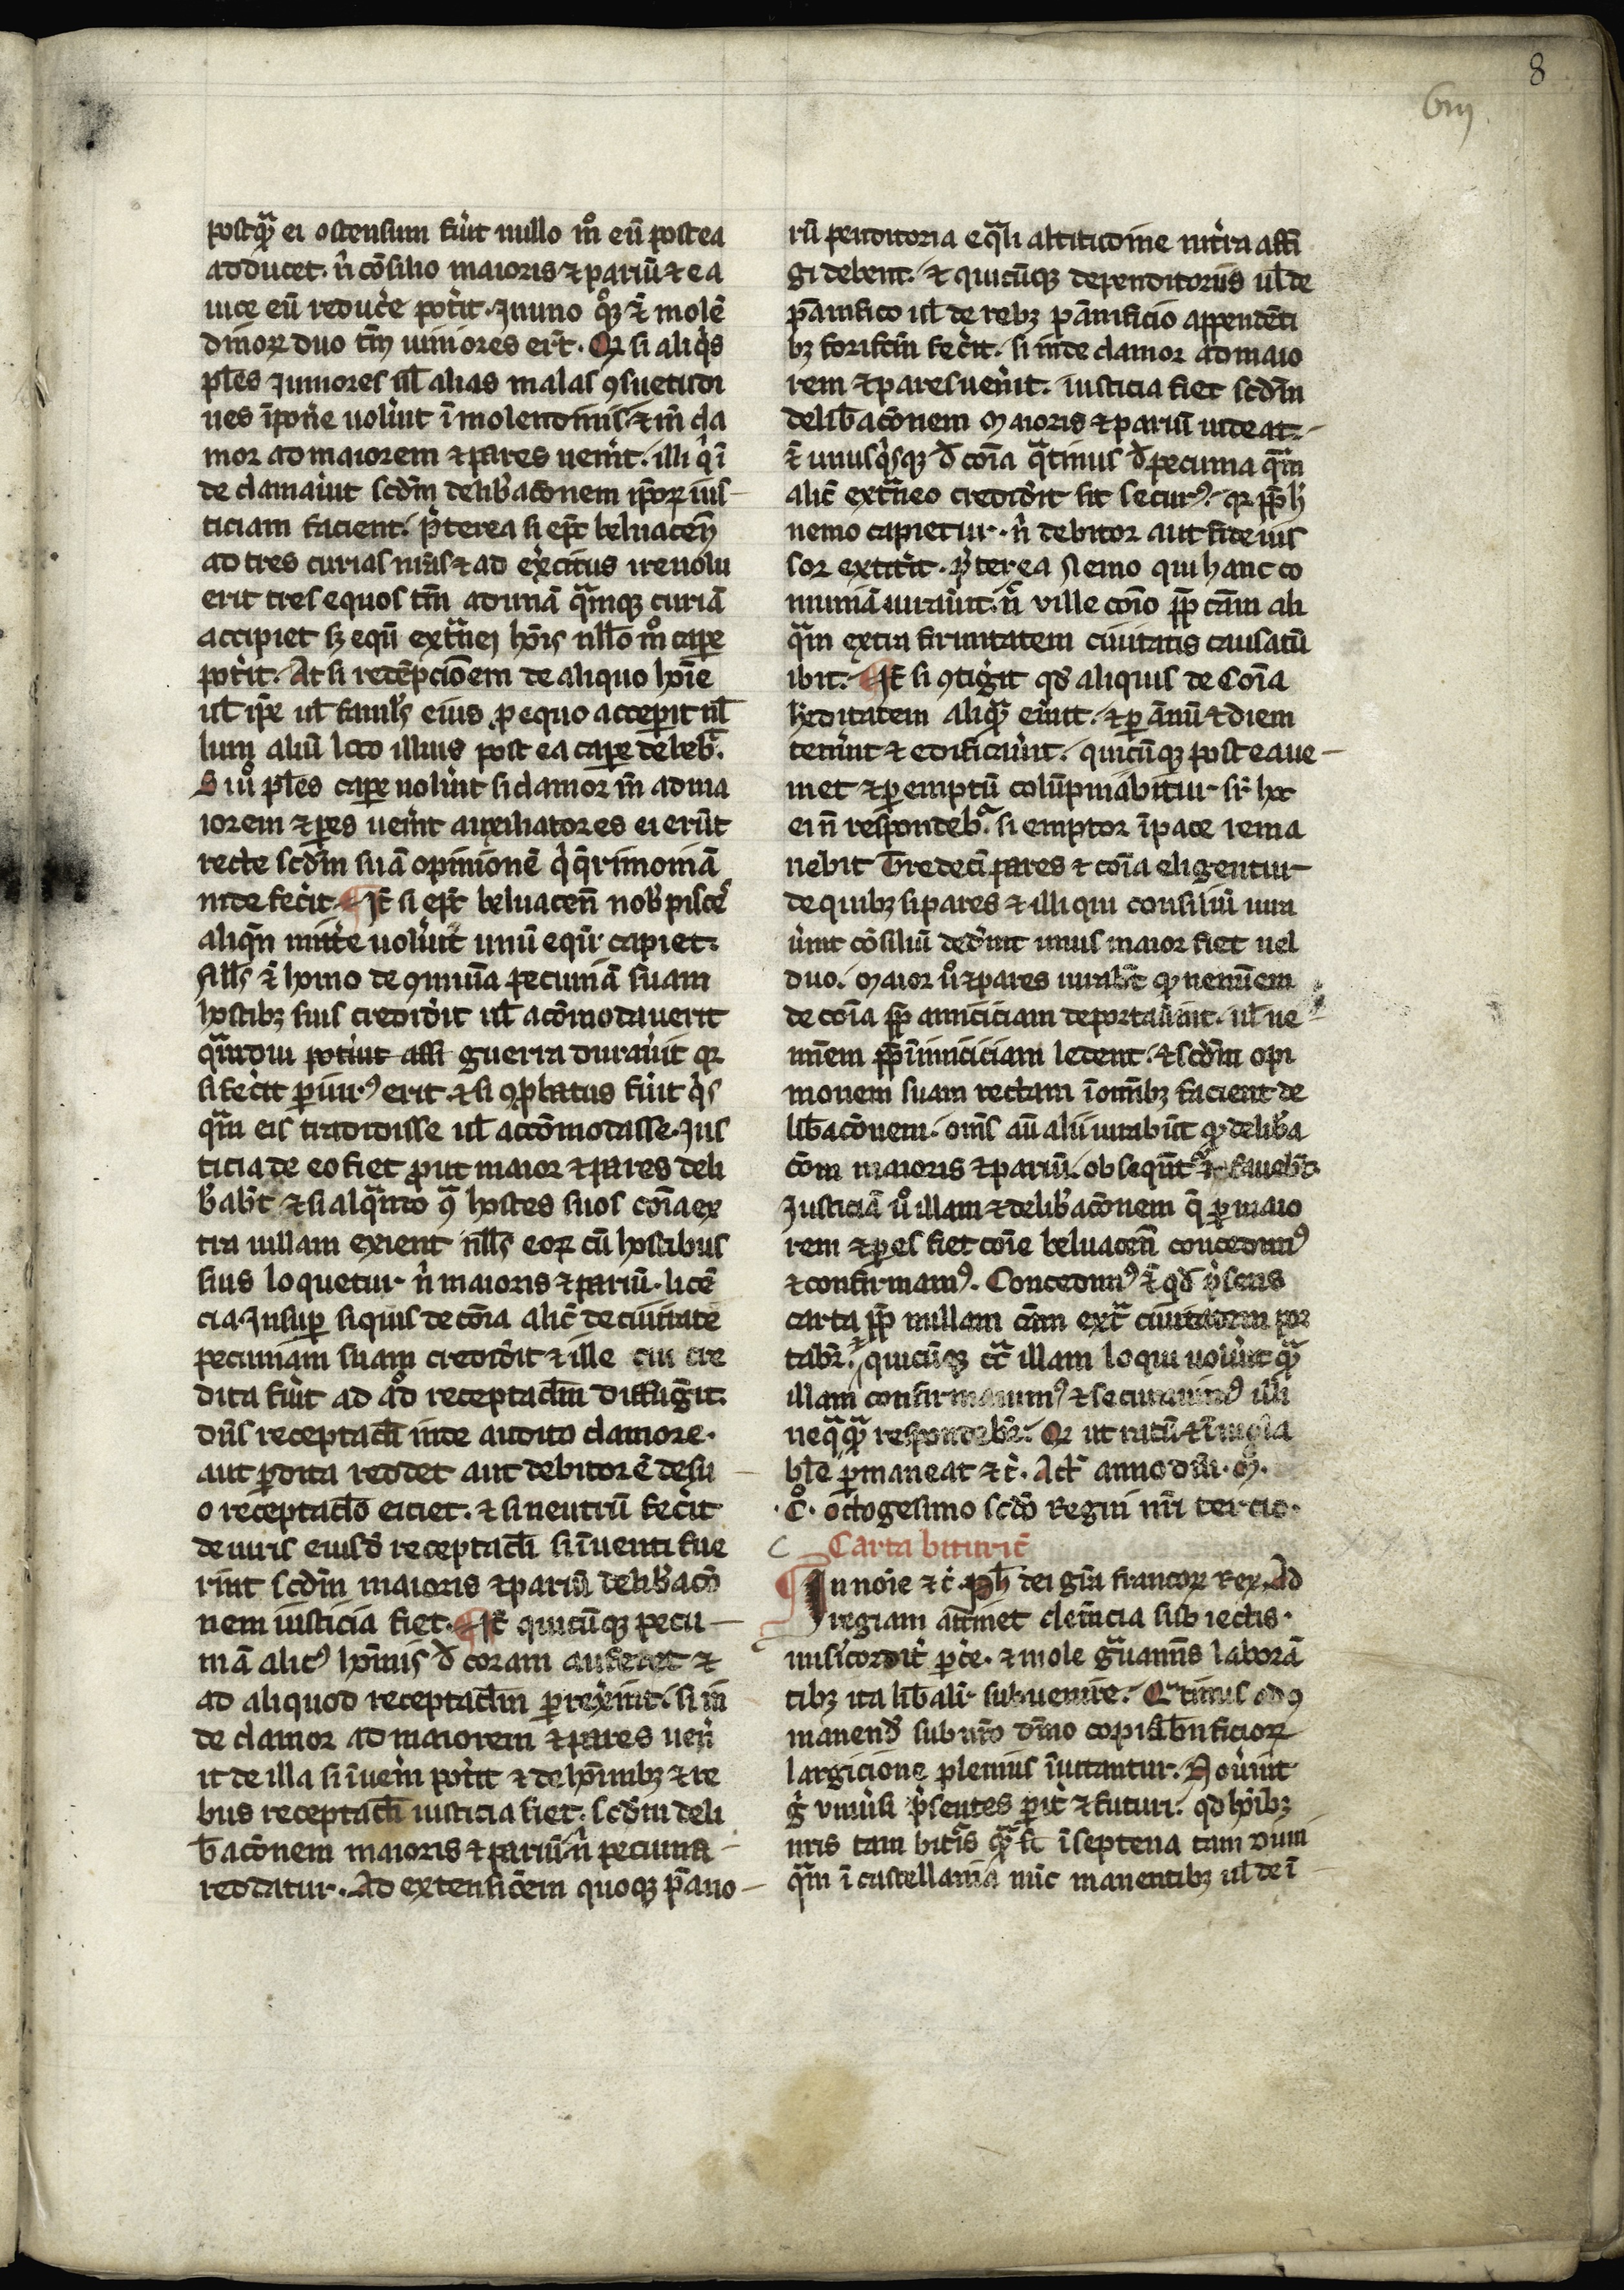 8
postq̃ ei ostensum fũit nullo mº eũ postea
adducet. ñ cõsilio maioris ⁊ pariũ ⁊ ea
uice eũ reducẽ potĩt. Jn uno qºqꝫ ⁊̃ molẽ
dinoꝝ duo tm̃ iuniores erũt. Qꝛ si aliqͥs
pl̃es Juniores ul̃ alias malas ꝯsuetudi
nes ĩpoñe uolũit ĩ molendinis ⁊ iñ cla
mor ad maiorem ⁊ pares uenĩt. illi qͥ ĩ
de clamaũit scd̃m delib̃acõnem ip̃oꝝ ius
ticiam facient. p̃terea si ep̃c beluaceñ
ad tres curias nr̃as ⁊ ad exc̃itus ire uolu
erit tres equos tm̃ ad unã qᵃmqꝫ curiã
accipiet sꝫ equũ extᵃnei hõis nll̃o mº caꝑe
potĩt. At si redẽpcionem de aliquo hõie
ul̃ ip̃e ul̃ famul̃s eius ꝓ equo acceperit nl̃
lum aliũ loco illius post ea caꝑe debebᵃ.
S uº pl̃es caꝑe uolũit si clamor iñ ad ma
iorem ⁊ ꝑes uenĩt auxiliatores ei erũt
recte scd̃m suã opinionẽ qͥ q̃rimoniã
inde fec̃it. ¶ Jt̃ si ep̃c beluaceñ nob̃ piscẽ
aliqñ mitt̃e uolũit unũ equũ capiet.
Null̃s ⁊̃ homo de ꝯmunĩa pecuniã suam
hostibꝫ suis credid̃it ul̃ acõmodauerit
qᵃmdiu potiut affi guerra duraũit qꝛ
si fec̃it ꝑiurꝰ erit. ⁊ si ꝯꝓbatus fũit qͥs
qᵃm eis tradidisse ul̃ accõmodasse. Jus
ticia de eo fiet ꝓut maior ⁊ pares deli
b̃abt̃ ⁊ si alqᵃndo ꝯᵃ hostes suos cõia ex
tra uillam exient null̃s eoꝝ cũ hostibus
suis loquetur ñ maioris ⁊ pariũ. licẽ
cia. Jnsuꝑ si quis de cõia alic̃ de ciuitate
pecuniam suam credid̃it ⁊ ille cui cre
dita fũit ad aͥd receptacl̃m diffug̃it.
dñs receptacl̃i inde audito clamore.
aut ꝑdita reddet aut debitorẽ de su
o receptacl̃o eiciet. ⁊ si neutrũ fec̃it
de uiris eiusd̃ receptacl̃i si ĩuenti fue
rint scd̃m maioris ⁊ pariũ delib̃acõ
nem iusticia fiet. ¶ Jt̃ quicũqꝫ pecu
niã alicꝰ hõinis d̃ coram auferet ⁊
ad aliquod receptacl̃m ꝑrexĩt. si in
de clamor ad maiorem ⁊ pares uenĩ
it de illa si ĩuenĩ potĩt ⁊ de hõinibꝫ ⁊ re
bus receptacl̃i iusticia fiet. scd̃m deli
b̃acõnem maioris ⁊ pariũ ñ pecunia
reddatur. Ad extensic̃em quoqꝫ pãno
rũ penditoria eqᵃli altitudine in tr̃ra affi
gi debent. ⁊ quicũqꝫ de penditoriis ul̃ de
pãnifico ul̃ de rebꝫ pãnificio appendẽti
bꝫ forifctm̃ fec̃it. si inde clamor ad maio
rem ⁊ pares uenĩt. iusticia fiet scd̃m
delib̃acõnem maioris ⁊ pariũ uideat.
⁊̃ unusqͥsqꝫ d̃ cõia qᵃtinus d̃ pecunia qᵃm
alic̃ extᵃneo credid̃it sit securꝰ. qꝛ ꝓp̃ h̃
nemo capietur. ñ debitor aut fideius
sor extitĩt. p̃terea nemo qui hanc co
muniã iuraũit. ñ ville cõio ꝓp̃ cãm ali
qᵃm extra firmitatem ciuitatis causatũ
ibit. ¶ Jt̃ si ꝯtig̃it qd̃ aliquis de cõia
h̃editatem aliqᵃ em̃it. ⁊ ꝑ ãnũ ⁊ diem
tenũit ⁊ edificaũit. quicũqꝫ post ea ue
niet ⁊ ꝑ emptũ colũpniabitur sr̃ hoc
ei ñ respondebᵃ. si emptor ĩ pace rema
nebit Tredecĩ pares ⁊ cõia eligentur
de quibꝫ si pares ⁊ illi qui consiliũ iura
ũint cõsiliũ ded̃int unus maior fiet uel
duo. Maior uº ⁊ pares iurabt̃ qꝫ neminem
de cõia ꝓp̃ amiciciam deportaũint. ul̃ ne
minem ꝓp̃ ĩimiciciam ledent. ⁊ scd̃m opi
nionem suam rectam ĩ omĩbꝫ facient de
lib̃acõnem. oms̃ aũ alii iurabũt qꝫ delib̃a
cõm maioris ⁊ pariũ. obsequnt̃ ⁊ fauebt̃
Justiciã uº illam ⁊ delib̃acõnem q̃ ꝑ maio
rem ⁊ ꝑes fiet cõie beluaceñ concedimꝰ
⁊ confirmamꝰ. Concedimꝰ ⁊̃ qd̃ p̃sens
carta ꝓp̃ nullam cãm extᵃ ciuitatem por
tabr̃. ⁊ quicũqꝫ cᵃ illam loqui uolũit qᵃ
illam confirmauimꝰ ⁊ securauimꝰ illi
neqᵃqᵃ respondebr̃. Qꝛ ut ratũ ⁊ ĩuiola
bl̃e ꝑmaneat ⁊c̃. Act̃ anno dñi. Mº.
Cº. octogesimo scd̃o Regni nr̃i tercio.
C Carta bituric̃
In noĩe ⁊c̃. Ph̃ dei grã francoꝝ Rex. Ad
regiam attinet clem̃cia subiectis.
misĩcordit̃ ꝑcẽ. ⁊ mole gᵃuamĩs laborã
tibꝫ ita lib̃alit̃ subuenire. Qᵃtinus ad ꝯ
manend̃ sub nr̃o dñio copiã bñficioꝝ
largicione plenius ĩuitantur. Noũint
g̃ vniũsi p̃sentes ꝑit̃ ⁊ futuri. qd̃ hõibꝫ
nr̃is tam bitᵃis qᵃ si ĩ septena tam dum
qᵃm ĩ castellania nũc manentibꝫ ul̃ de ĩ